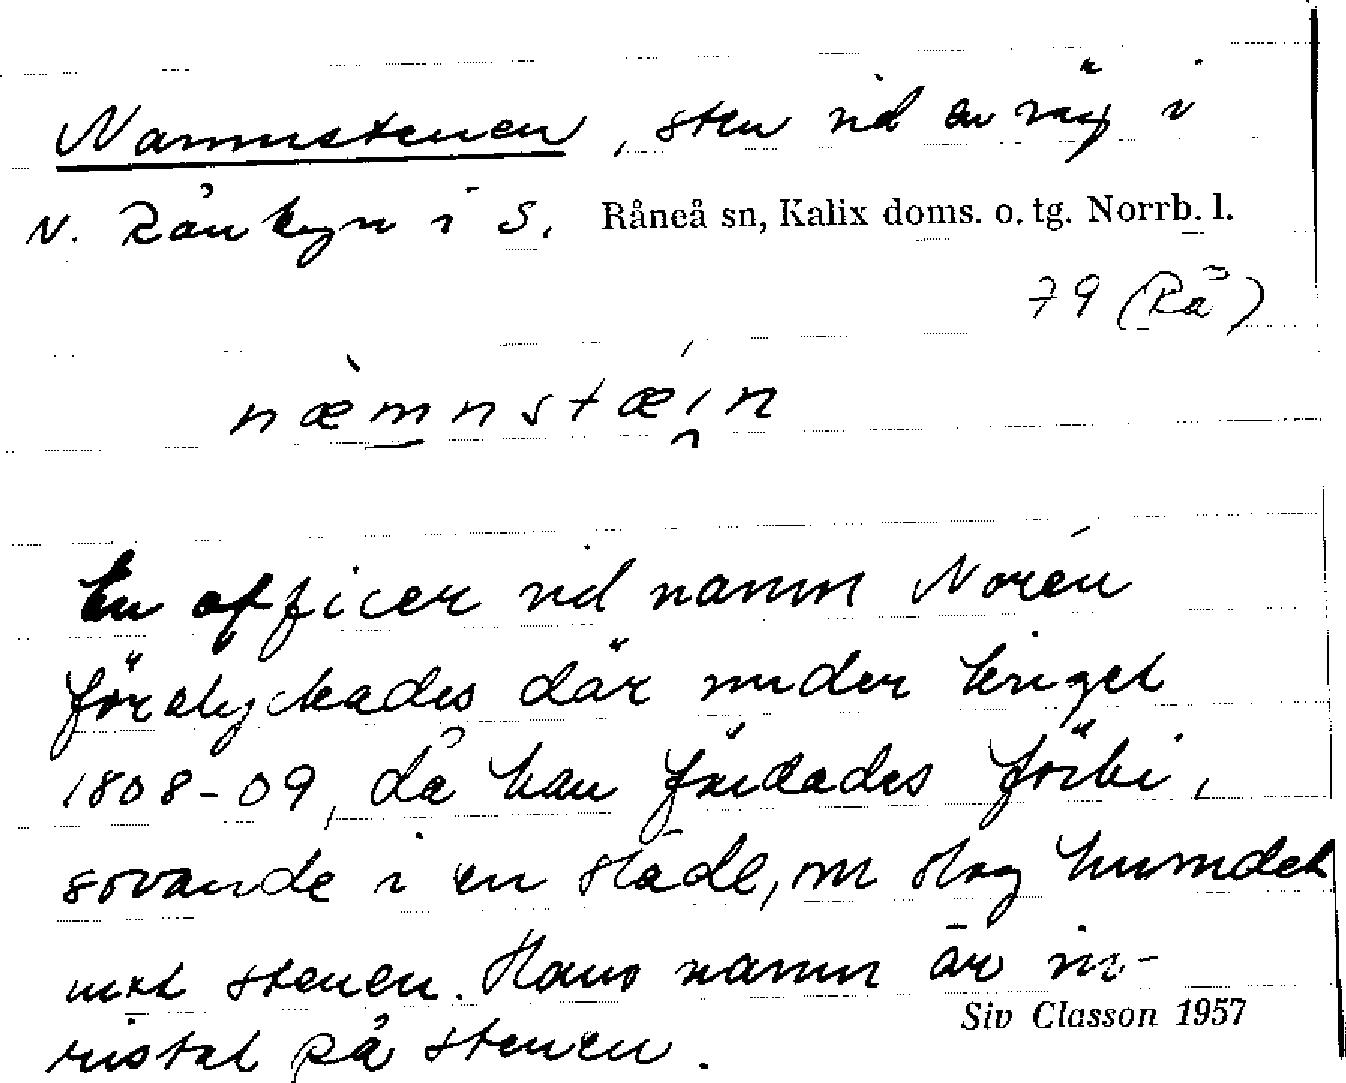 Namnstenen, sten vid en väg i
N. Rånbyn i S. Råneå sn, Kalix doms. o. tg. Norrb. l.
79 (Rå)
næ̀mnstǽi̯n
En officer vid namn Norén
förolyckades där under kriget
1808-09, då han färdades förbi,
sovande i en släde, och slog huvudet
mot stenen. Hans namn är in-
ristat på stenen.
Siv Classon 1957